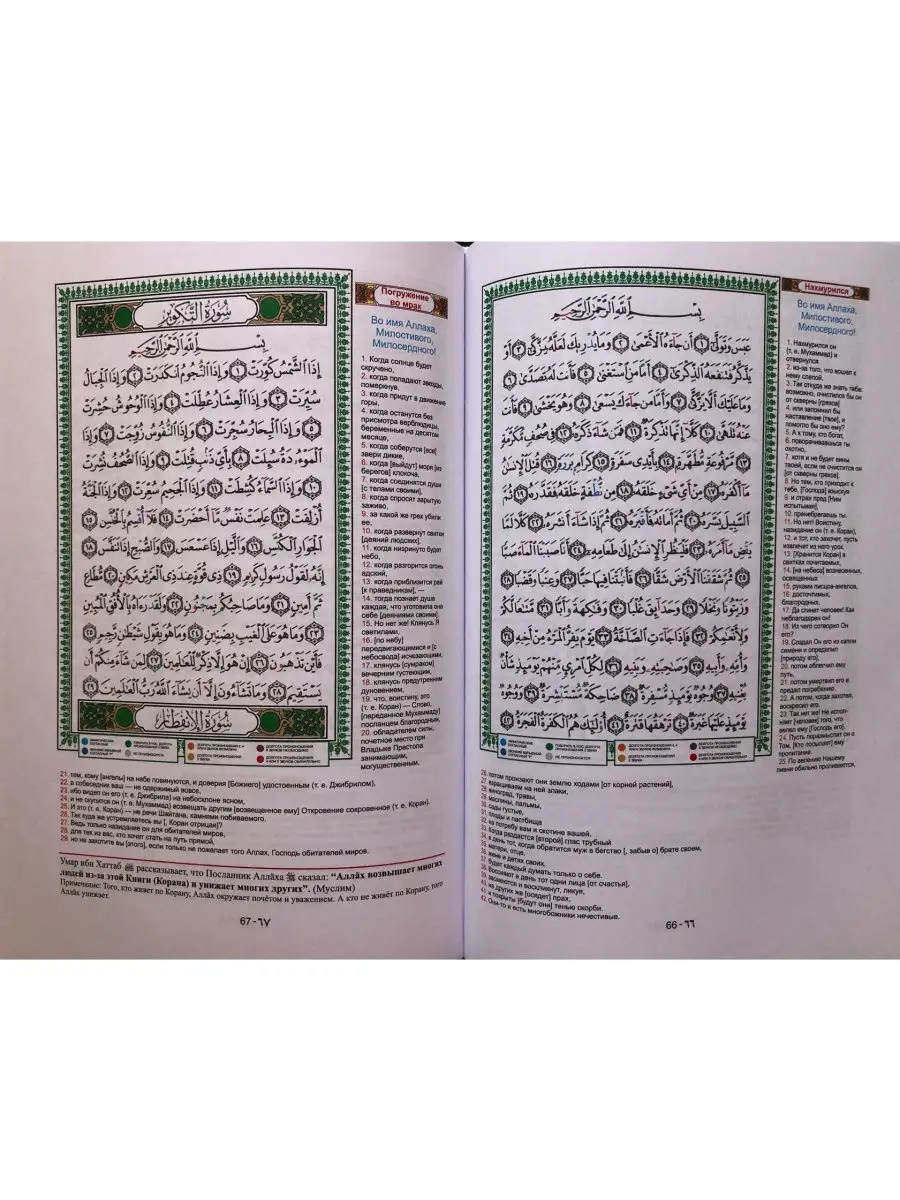 بِسْمِ اللَّهِ الرَّحْمَٰنِ الرَّحِيمِ
عَبَسَ وَتَوَلَّىٰ ١ أَن جَاءَهُ الْأَعْمَىٰ ٢ وَمَا يُدْرِيكَ لَعَلَّهُ يَزَّكَّىٰ ٣ أَوْ
يَذَّكَّرُ فَتَنفَعَهُ الذِّكْرَىٰ ٤ أَمَّا مَنِ اسْتَغْنَىٰ ٥ فَأَنتَ لَهُ تَصَدَّىٰ ٦
وَمَا عَلَيْكَ أَلَّا يَزَّكَّىٰ ٧ وَأَمَّا مَن جَاءَكَ يَسْعَىٰ ٨ وَهُوَ يَخْشَىٰ ٩ فَأَنتَ
عَنْهُ تَلَهَّىٰ ١٠ كَلَّا إِنَّهَا تَذْكِرَةٌ ١١ فَمَن شَاءَ ذَكَرَهُ ١٢ فِي صُحُفٍ مُّكَرَّمَةٍ
١٣ مَّرْفُوعَةٍ مُّطَهَّرَةٍ ١٤ بِأَيْدِي سَفَرَةٍ ١٥ كِرَامٍ بَرَرَةٍ ١٦ قُتِلَ الْإِنسَانُ
مَا أَكْفَرَهُ ١٧ مِنْ أَيِّ شَيْءٍ خَلَقَهُ ١٨ مِن نُّطْفَةٍ خَلَقَهُ فَقَدَّرَهُ ١٩ ثُمَّ
السَّبِيلَ يَسَّرَهُ ٢٠ ثُمَّ أَمَاتَهُ فَأَقْبَرَهُ ٢١ ثُمَّ إِذَا شَاءَ أَنشَرَهُ ٢٢ كَلَّا لَمَّا
يَقْضِ مَا أَمَرَهُ ٢٣ فَلْيَنظُرِ الْإِنسَانُ إِلَىٰ طَعَامِهِ ٢٤ أَنَّا صَبَبْنَا الْمَاءَ صَبًّا
٢٥ ثُمَّ شَقَقْنَا الْأَرْضَ شَقًّا ٢٦ فَأَنبَتْنَا فِيهَا حَبًّا ٢٧ وَعِنَبًا وَقَضْبًا ٢٨
وَزَيْتُونًا وَنَخْلًا ٢٩ وَحَدَائِقَ غُلْبًا ٣٠ وَفَاكِهَةً وَأَبًّا ٣١ مَّتَاعًا لَّكُمْ
وَلِأَنْعَامِكُمْ ٣٢ فَإِذَا جَاءَتِ الصَّاخَّةُ ٣٣ يَوْمَ يَفِرُّ الْمَرْءُ مِنْ أَخِيهِ
٣٤ وَأُمِّهِ وَأَبِيهِ ٣٥ وَصَاحِبَتِهِ وَبَنِيهِ ٣٦ لِكُلِّ امْرِئٍ مِّنْهُمْ يَوْمَئِذٍ شَأْنٌ
يُغْنِيهِ ٣٧ وُجُوهٌ يَوْمَئِذٍ مُّسْفِرَةٌ ٣٨ ضَاحِكَةٌ مُّسْتَبْشِرَةٌ ٣٩ وَوُجُوهٌ
يَوْمَئِذٍ عَلَيْهَا غَبَرَةٌ ٤٠ تَرْهَقُهَا قَتَرَةٌ ٤١ أُولَٰئِكَ هُمُ الْكَفَرَةُ الْفَجَرَةُ ٤٢
Нахмурился
Во имя Аллаха,
Милостивого,
Милосердного!
1. Нахмурился он
(т. е. Мухаммад) и
отвернулся
2. из-за того, что вошел к
нему слепой,
3. Так откуда же знать тебе:
возможно, очистился бы он
от скверны [грехов]
4. или запомнил бы
наставление [твое], и
помогло бы оно ему?
5. А к тому, кто богат,
6. поворачиваешься ты
охотно,
7. хотя и не будет вины
твоей, если не очистится он
[от скверны грехов]
8. Но тем, кто приходит к
тебе, [Господа] взыскуя
9. и страх пред [Ним
испытывая],
10. пренебрегаешь ты.
11. Но нет! Воистину,
назидание он (т. е. Коран),
12. и тот, кто захочет, пусть
извлечет из него урок.
13. [Хранится Коран] в
свитках почитаемых,
14. [на небеса] вознесенных,
освященных
15. руками писцов-ангелов,
16. досточтимых,
благородных.
17. Да сгинет человек! Как
неблагодарен он!
18. Из чего сотворил Он
его?
19. Создал Он его из капли
семени и определил
[природу его],
20. потом облегчил ему
путь,
21. потом умертвил его и
предал погребению.
22. А потом, когда захотел,
воскресит его.
23. Так нет же! Не исполнил
[человек] того, что
велел ему [Господь].
24. Пусть поразмыслит он о
Том, [Кто посылает] ему
пропитание.
25. По велению Нашему
ливни обильно проливаются,
26. потом пронзают они землю ходами [от корней растений],
27. взращиваем на ней злаки,
28. виноград, травы,
29. маслины, пальмы,
30. сады густые,
31. плоды и пастбища
32. на потребу вам и скотине вашей.
33. Когда раздастся [второй] глас трубный
34. в день тот, когда обратится муж в бегство [, забыв о] брате своем,
35. матери, отце,
36. жене и детях своих,
37. будет каждый думать только о себе.
38. Воссияют в день тот одни лица [от счастья],
39. засмеются и воскликнут, ликуя,
40. на других же [осядет] прах,
41. и покрыты [будут они] тенью скорби.
42. Они-то и есть многобожники нечестивые.
66 - ٦٦
سُورَةُ التَّكْوِيرِ
بِسْمِ اللَّهِ الرَّحْمَٰنِ الرَّحِيمِ
إِذَا الشَّمْسُ كُوِّرَتْ ١ وَإِذَا النُّجُومُ انكَدَرَتْ ٢ وَإِذَا الْجِبَالُ
سُيِّرَتْ ٣ وَإِذَا الْعِشَارُ عُطِّلَتْ ٤ وَإِذَا الْوُحُوشُ حُشِرَتْ
٥ وَإِذَا الْبِحَارُ سُجِّرَتْ ٦ وَإِذَا النُّفُوسُ زُوِّجَتْ ٧ وَإِذَا
الْمَوْءُودَةُ سُئِلَتْ ٨ بِأَيِّ ذَنبٍ قُتِلَتْ ٩ وَإِذَا الصُّحُفُ نُشِرَتْ
١٠ وَإِذَا السَّمَاءُ كُشِطَتْ ١١ وَإِذَا الْجَحِيمُ سُعِّرَتْ ١٢ وَإِذَا الْجَنَّةُ
أُزْلِفَتْ ١٣ عَلِمَتْ نَفْسٌ مَّا أَحْضَرَتْ ١٤ فَلَا أُقْسِمُ بِالْخُنَّسِ ١٥
الْجَوَارِ الْكُنَّسِ ١٦ وَاللَّيْلِ إِذَا عَسْعَسَ ١٧ وَالصُّبْحِ إِذَا تَنَفَّسَ ١٨
إِنَّهُ لَقَوْلُ رَسُولٍ كَرِيمٍ ١٩ ذِي قُوَّةٍ عِندَ ذِي الْعَرْشِ مَكِينٍ ٢٠ مُّطَاعٍ
ثَمَّ أَمِينٍ ٢١ وَمَا صَاحِبُكُم بِمَجْنُونٍ ٢٢ وَلَقَدْ رَآهُ بِالْأُفُقِ الْمُبِينِ
٢٣ وَمَا هُوَ عَلَى الْغَيْبِ بِضَنِينٍ ٢٤ وَمَا هُوَ بِقَوْلِ شَيْطَانٍ رَّجِيمٍ ٢٥
فَأَيْنَ تَذْهَبُونَ ٢٦ إِنْ هُوَ إِلَّا ذِكْرٌ لِّلْعَالَمِينَ ٢٧ لِمَن شَاءَ مِنكُمْ أَن
يَسْتَقِيمَ ٢٨ وَمَا تَشَاءُونَ إِلَّا أَن يَشَاءَ اللَّهُ رَبُّ الْعَالَمِينَ ٢٩
سُورَةُ الِانفِطَارِ
Погружение
во мрак
Во имя Аллаха,
Милостивого,
Милосердного!
1. Когда солнце будет
скручено,
2. когда попадают звезды,
померкнув,
3. когда придут в движение
горы,
4. когда останутся без
присмотра верблюдицы,
беременные на десятом
месяце,
5. когда соберутся [все]
звери дикие,
6. когда [выйдут] моря [из
берегов] клокоча,
7. когда соединятся души
[с телами своими],
8. когда спросят зарытую
заживо,
9. за какой же грех убили
ее,
10. когда развернут свитки
[деяний людских],
11. когда низринуто будет
небо,
12. когда разгорится огонь
адский,
13. когда приблизится рай
[к праведникам], —
14. тогда познает душа
каждая, что уготовила она
себе [деяниями своими].
15. Но нет же! Клянусь Я
светилами,
16. [по небу]
передвигающимися и [с
небосвода] исчезающими,
17. клянусь [сумраком]
вечерним густеющим,
18. клянусь предутренним
дуновением,
19. что, воистину, это
(т. е. Коран) — Слово,
[переданное Мухаммаду]
посланцем благородным,
20. обладателем силы,
почетное место при
Владыке Престола
занимающим,
могущественным,
21. том, кому [ангелы] на небе повинуются, и доверия [Божиего] удостоенным (т. е. Джибрилом),
22. а собеседник ваш — не одержимый вовсе,
23. ибо видел он его (т. е. Джибрила) на небосклоне ясном,
24. и не скупится он (т. е. Мухаммад) возвещать другим [возвещенное ему] Откровение сокровенное (т. е. Коран).
25. И это (т. е. Коран) — не речи Шайтана, камнями побиваемого.
26. Так куда же устремляетесь вы [, Коран отрицая]?
27. Ведь только назидание он для обитателей миров,
28. для тех из вас, кто хочет стать на путь прямой,
29. но не захотите вы [этого], если только не пожелает того Аллах, Господь обитателей миров.
Умар ибн Хаттаб ﷺ рассказывает, что Посланник Аллāха ﷺ сказал: “Аллāх возвышает многих
людей из-за этой Книги (Корана) и унижает многих других”. (Муслим)
Примечание: Того, кто живет по Корану, Аллāх окружает почётом и уважением. А кто не живёт по Корану, того
Аллāх унижает.
67 - ٦٧